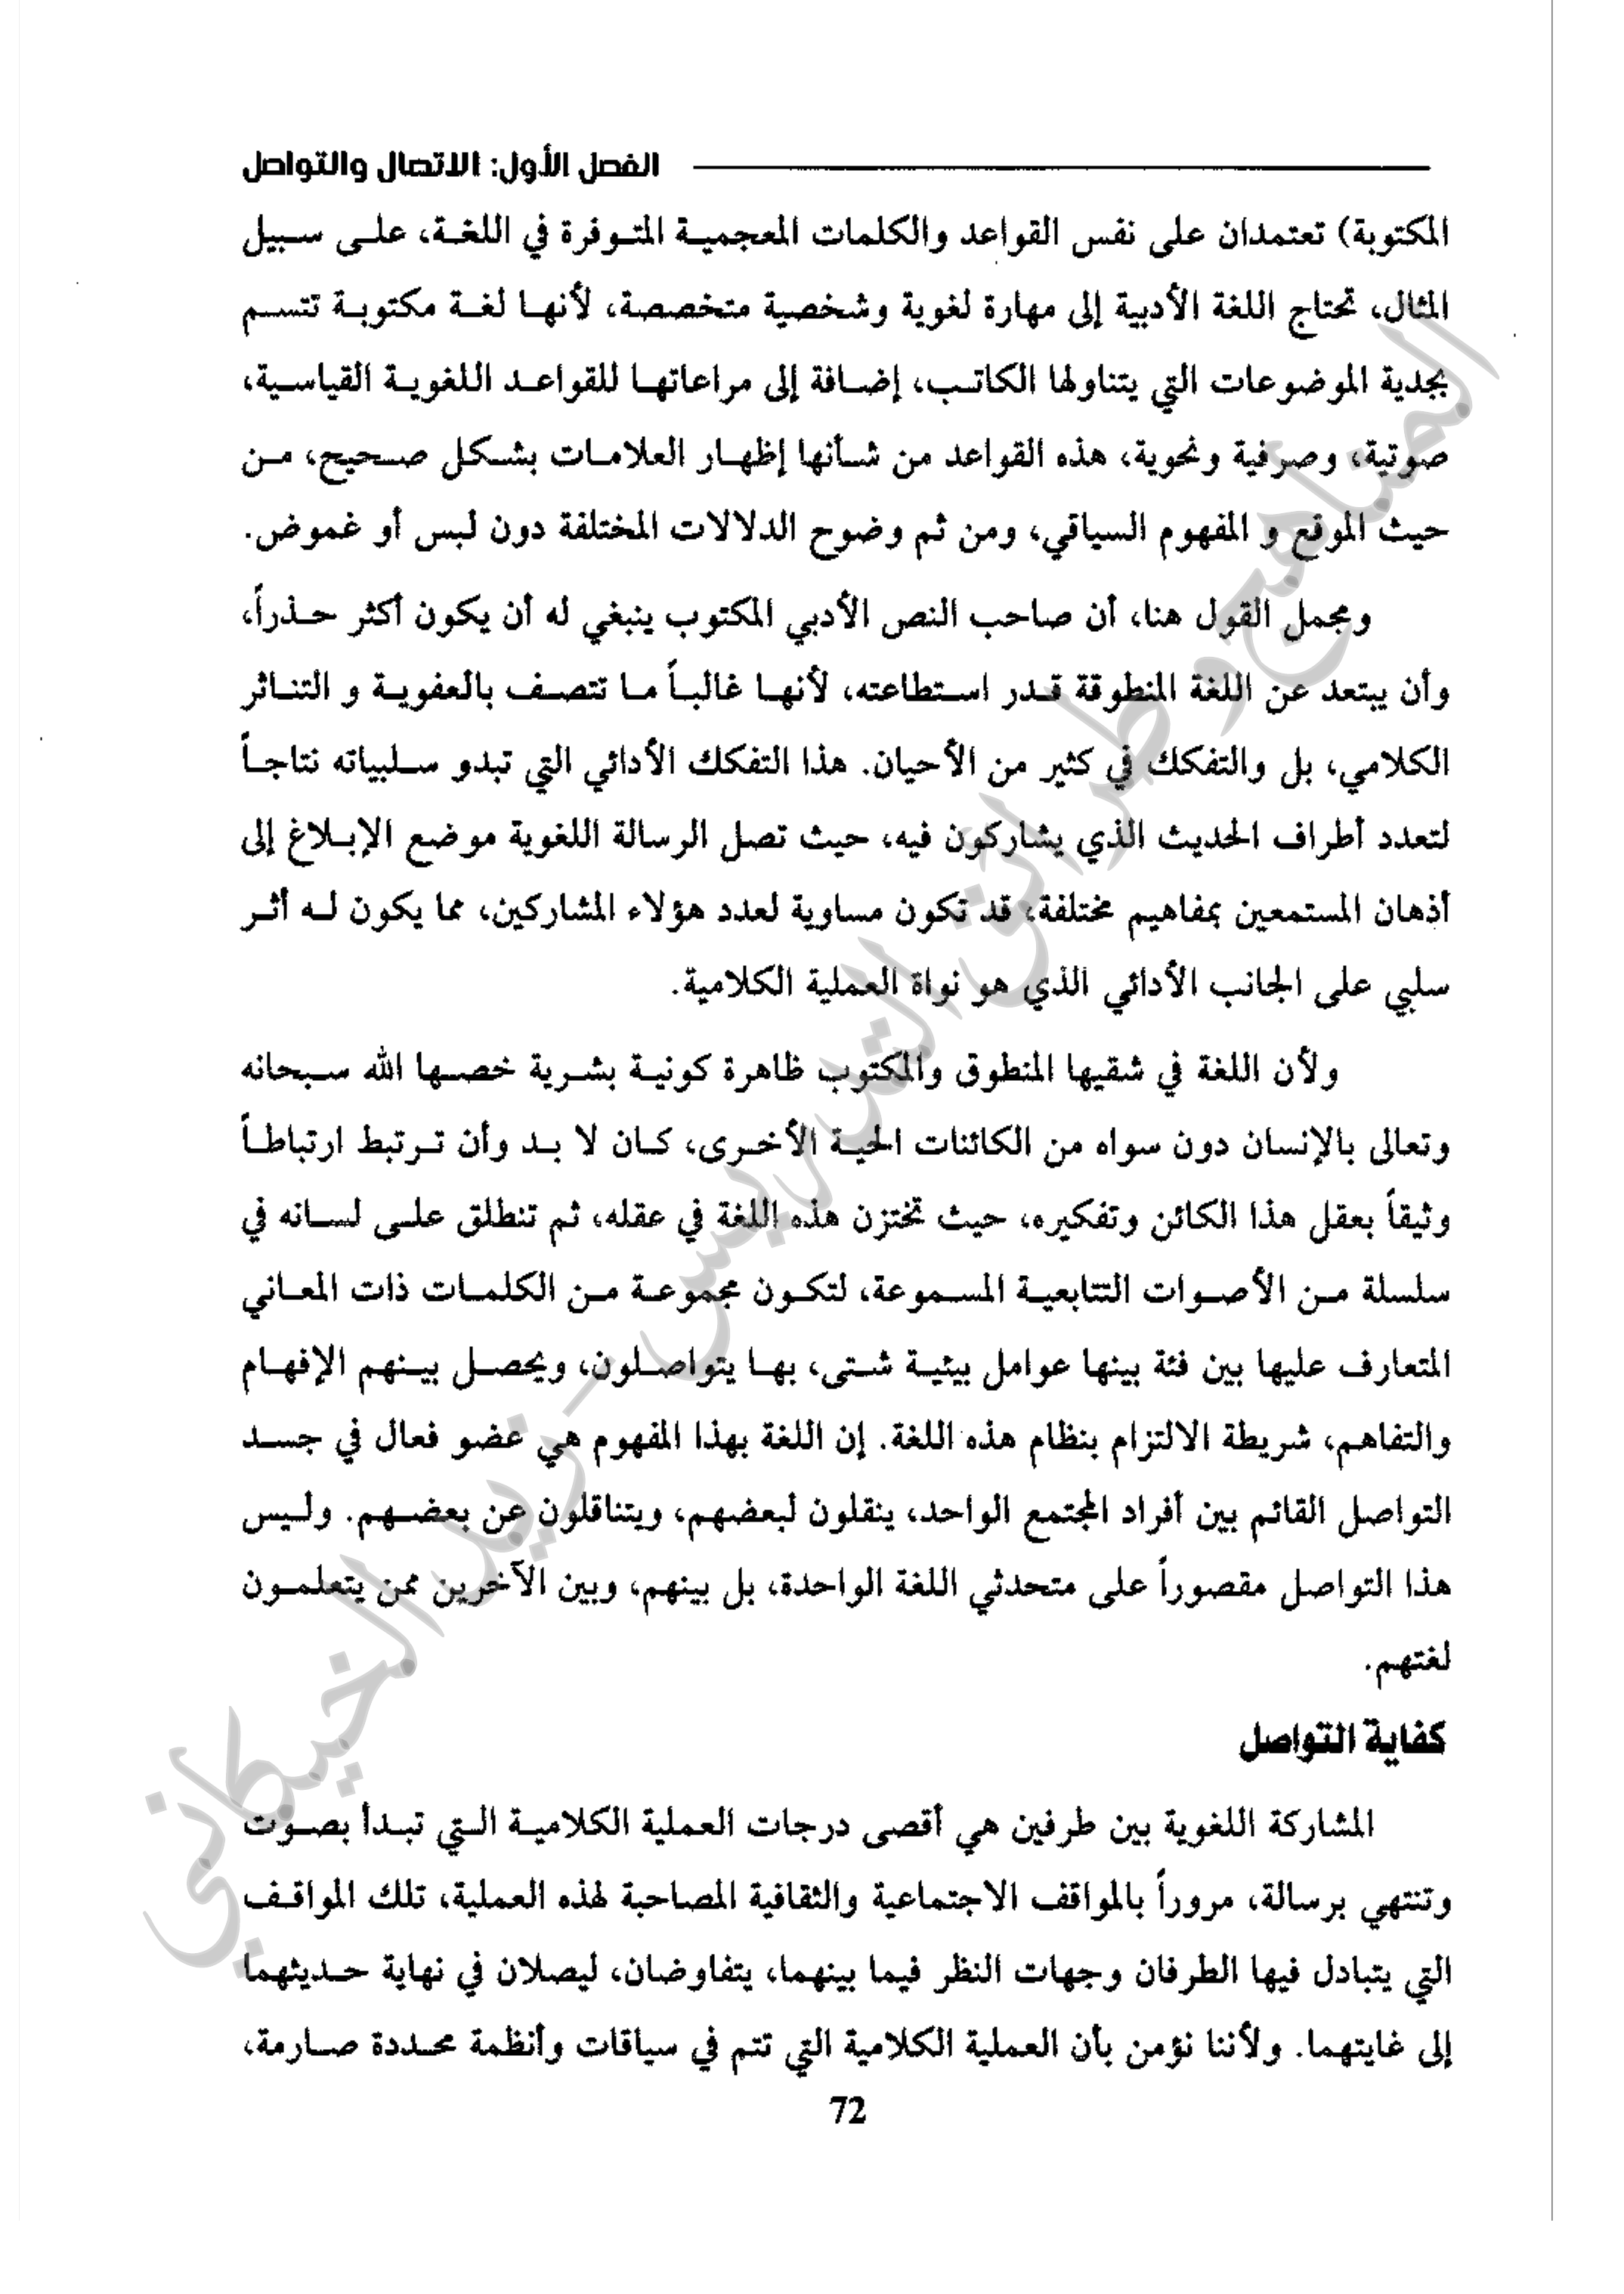 الفصل الأول: الاتصال والتواصل
المكتوبة) تعتمدان على نفس القواعد والكلمات المعجمية المتوفرة في اللغة، على سبيل
المثال، تحتاج اللغة الأدبية إلى مهارة لغوية وشخصية متخصصة، لأنها لغة مكتوبة تتسم
بجدية الموضوعات التي يتناولها الكاتب، إضافة إلى مراعاتها للقواعد اللغوية القياسية،
صوتية، وصرفية ونحوية، هذه القواعد من شأنها إظهار العلامات بشكل صحيح، من
حيث الموقع و المفهوم السياقي، ومن ثم وضوح الدلالات المختلفة دون لبس أو غموض.
ومجمل القول هنا، أن صاحب النص الأدبي المكتوب ينبغي له أن يكون أكثر حذراً،
وأن يبتعد عن اللغة المنطوقة قدر استطاعته، لأنها غالباً ما تتصف بالعفوية و التناثر
الكلامي، بل والتفكك في كثير من الأحيان. هذا التفكك الأدائي التي تبدو سلبياته نتاجاً
لتعدد أطراف الحديث الذي يشاركون فيه، حيث تصل الرسالة اللغوية موضع الإبلاغ إلى
أذهان المستمعين بمفاهيم مختلفة، قد تكون مساوية لعدد هؤلاء المشاركين، مما يكون له أثر
سلبي على الجانب الأدائي الذي هو نواة العملية الكلامية.
ولأن اللغة في شقيها المنطوق والمكتوب ظاهرة كونية بشرية خصها الله سبحانه
وتعالى بالإنسان دون سواه من الكائنات الحية الأخرى، كان لا بد وأن ترتبط ارتباطاً
وثيقاً بعقل هذا الكائن وتفكيره، حيث تختزن هذه اللغة في عقله، ثم تنطلق على لسانه في
سلسلة من الأصوات التتابعية المسموعة، لتكون مجموعة من الكلمات ذات المعاني
المتعارف عليها بين فئة بينها عوامل بيئية شتى، بها يتواصلون، ويحصل بينهم الإفهام
والتفاهم، شريطة الالتزام بنظام هذه اللغة. إن اللغة بهذا المفهوم هي عضو فعال في جسد
التواصل القائم بين أفراد المجتمع الواحد، ينقلون لبعضهم، ويتناقلون عن بعضهم. وليس
هذا التواصل مقصوراً على متحدثي اللغة الواحدة، بل بينهم، وبين الآخرين ممن يتعلمون
لغتهم.
كفاية التواصل
المشاركة اللغوية بين طرفين هي أقصى درجات العملية الكلامية التي تبدأ بصوت
وتنتهي برسالة، مروراً بالمواقف الاجتماعية والثقافية المصاحبة لهذه العملية، تلك المواقف
التي يتبادل فيها الطرفان وجهات النظر فيما بينهما، يتفاوضان، ليصلان في نهاية حديثهما
إلى غايتهما. ولأننا نؤمن بأن العملية الكلامية التي تتم في سياقات وأنظمة محددة صارمة،
72
المناهج وطرائق التدريس - زيد الخيكاني